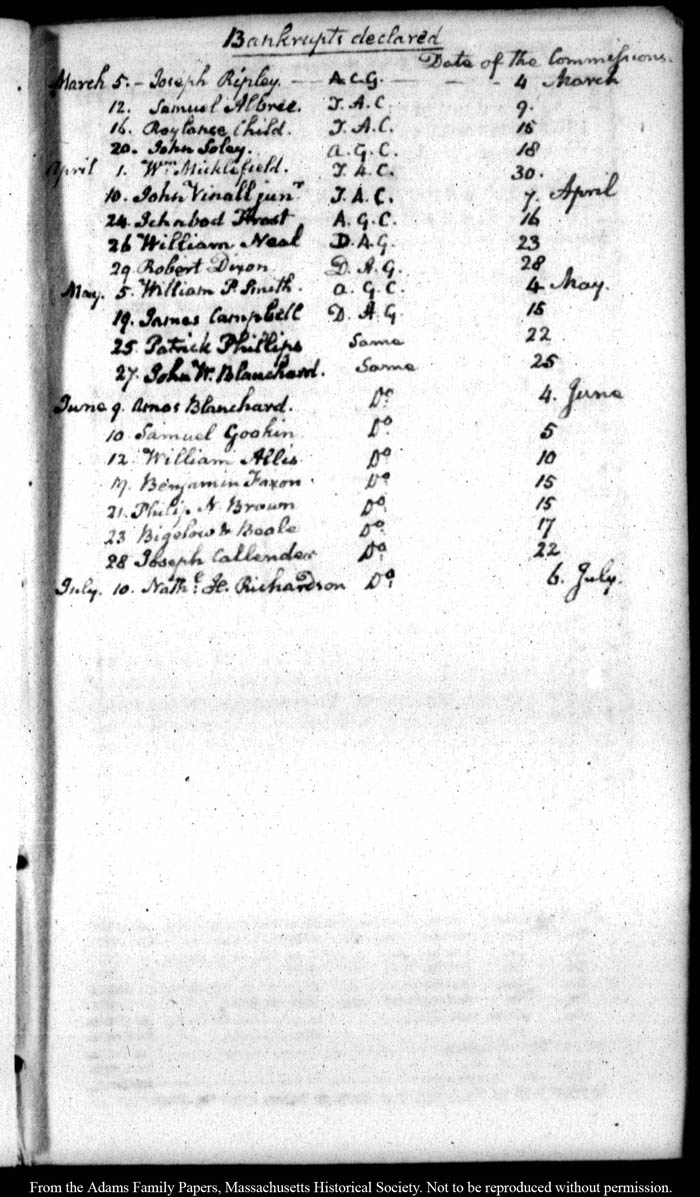 Bankrupts declared
Date of the Commissions.
March 5. - Joseph Ripley. - A.C.G. - - - 4 March
12. Samuel Albree. T.A.C. 9.
16. Roylance Child. T.A.C. 15
20. John Soley. A.G.C. 18
April 1. Wm Micklefield. T.A.C. 30.
10. John Vinall junr T.A.C. 7. April
24. Ichabod Frost A.G.C. 16
26 William Neal D.A.G. 23
29. Robert Dixon D.A.G. 28
May. 5. William P. Smith. A.G.C. 4 May.
19. James Campbell D.A.G 15
25. Patrick Phillips Same 22
27. John W. Blanchard. Same 25
June 9. Amos Blanchard. Do. 4. June
10. Samuel Gookin Do. 5
12. William Allis Do. 10
17. Benjamin Faxon. Do. 15
21. Philip N. Brown Do. 15
23 Bigelow & Beale Do. 17
28 Joseph Callender Do. 22
July. 10. Nathl. H. Richardson Do. 6. July.
From the Adams Family Papers, Massachusetts Historical Society. Not to be reproduced without permission.